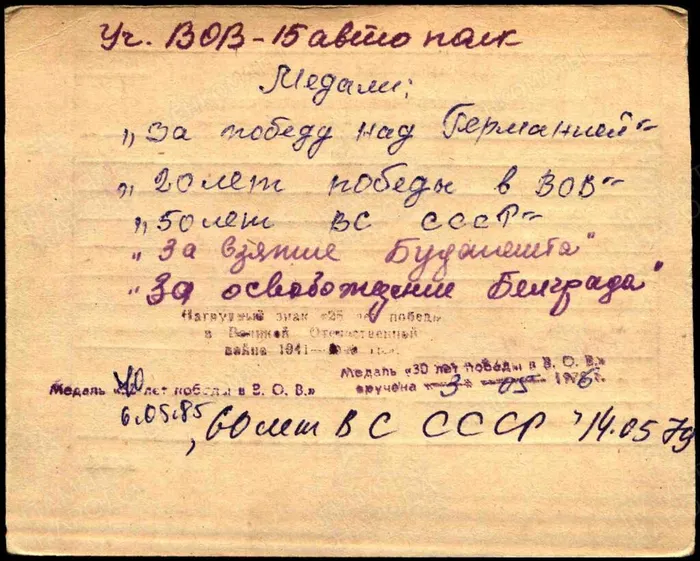 Уч. ВОВ - 15 авто полк
Медали:
„За победу над Германией"
„20 лет победы в ВОВ"
„50 лет ВС СССР"
"За взятие Будапешта"
"За освобождение Белграда"
Нагрудный знак «25 лет победы
в Великой Отечественной
война 1941—
Медаль «30 лет победы в В. О. В.»
вручена 3 05 1976г.
Медаль «40 лет победы в В. О. В.»
6.05.85
„60 лет ВС СССР" 14.05 79